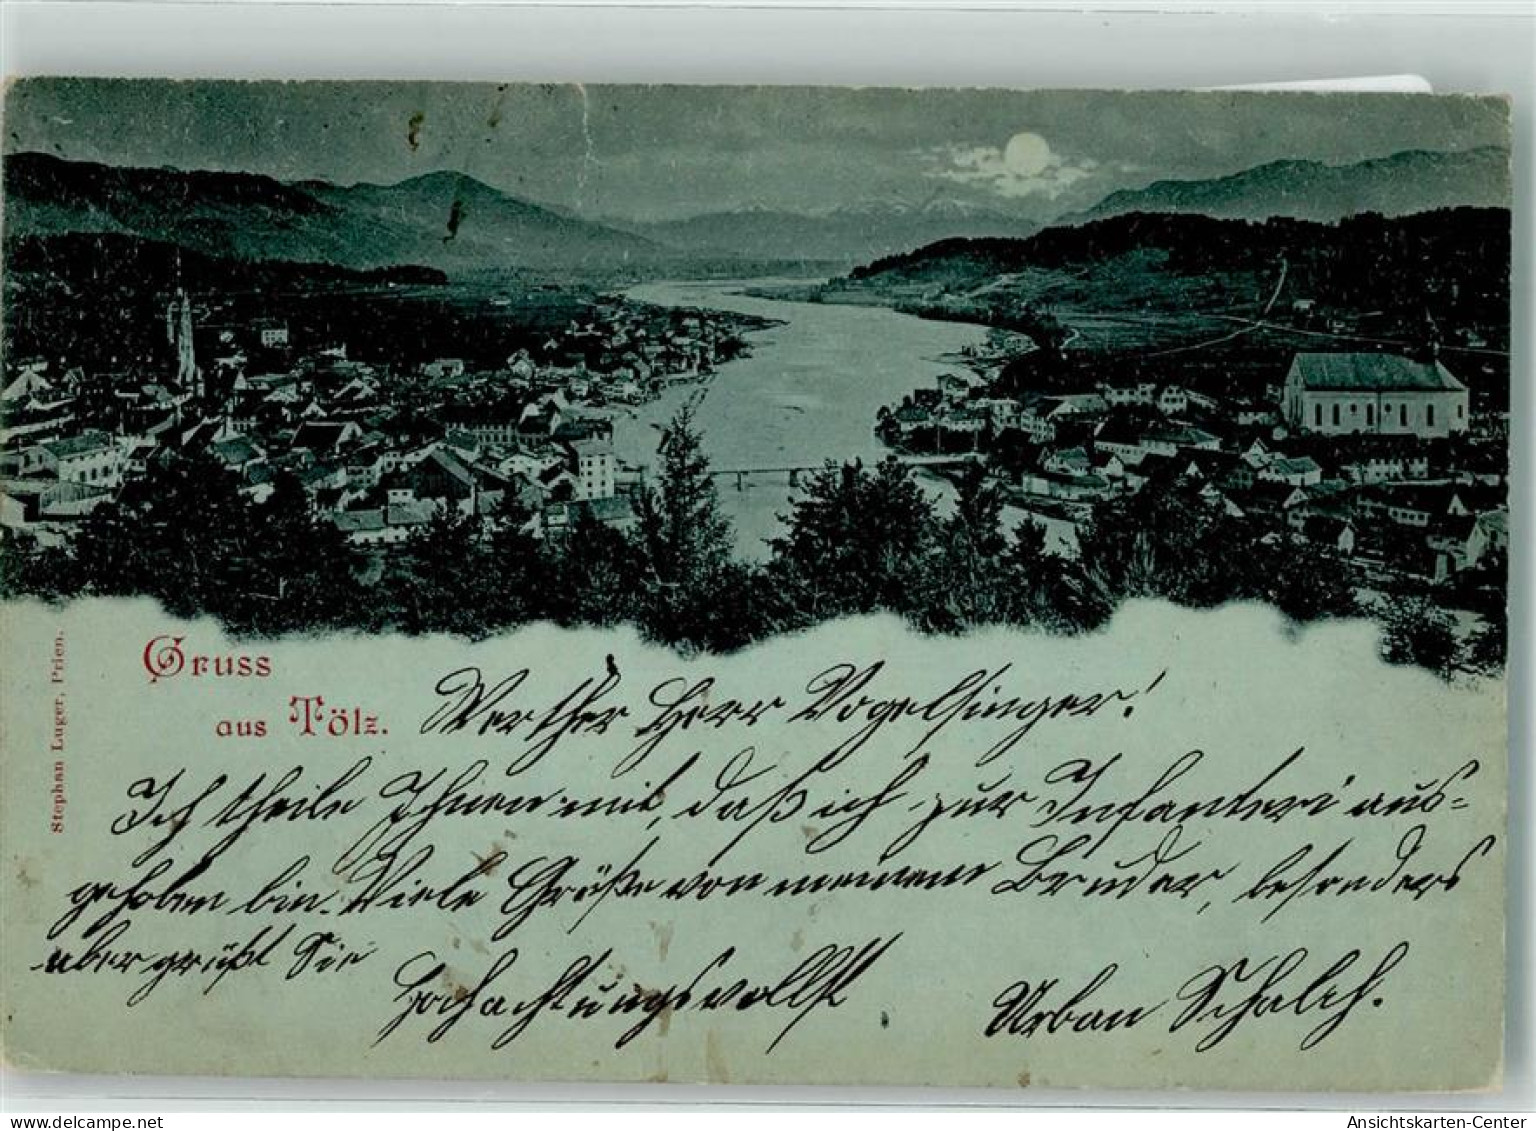 Gruss
aus Tölz.
Stephan Luger, Prien.
Werther Herr Vogelsinger!
Ich theile Ihnen mit, daß ich zur Infanteri aus=
gehoben bin. Viele Grüße von meinem Bruder, besonders
aber grüßt Sie
Hochachtungsvollst
Urban Schalch.
oldthing.de
Ansichtskarten-Center